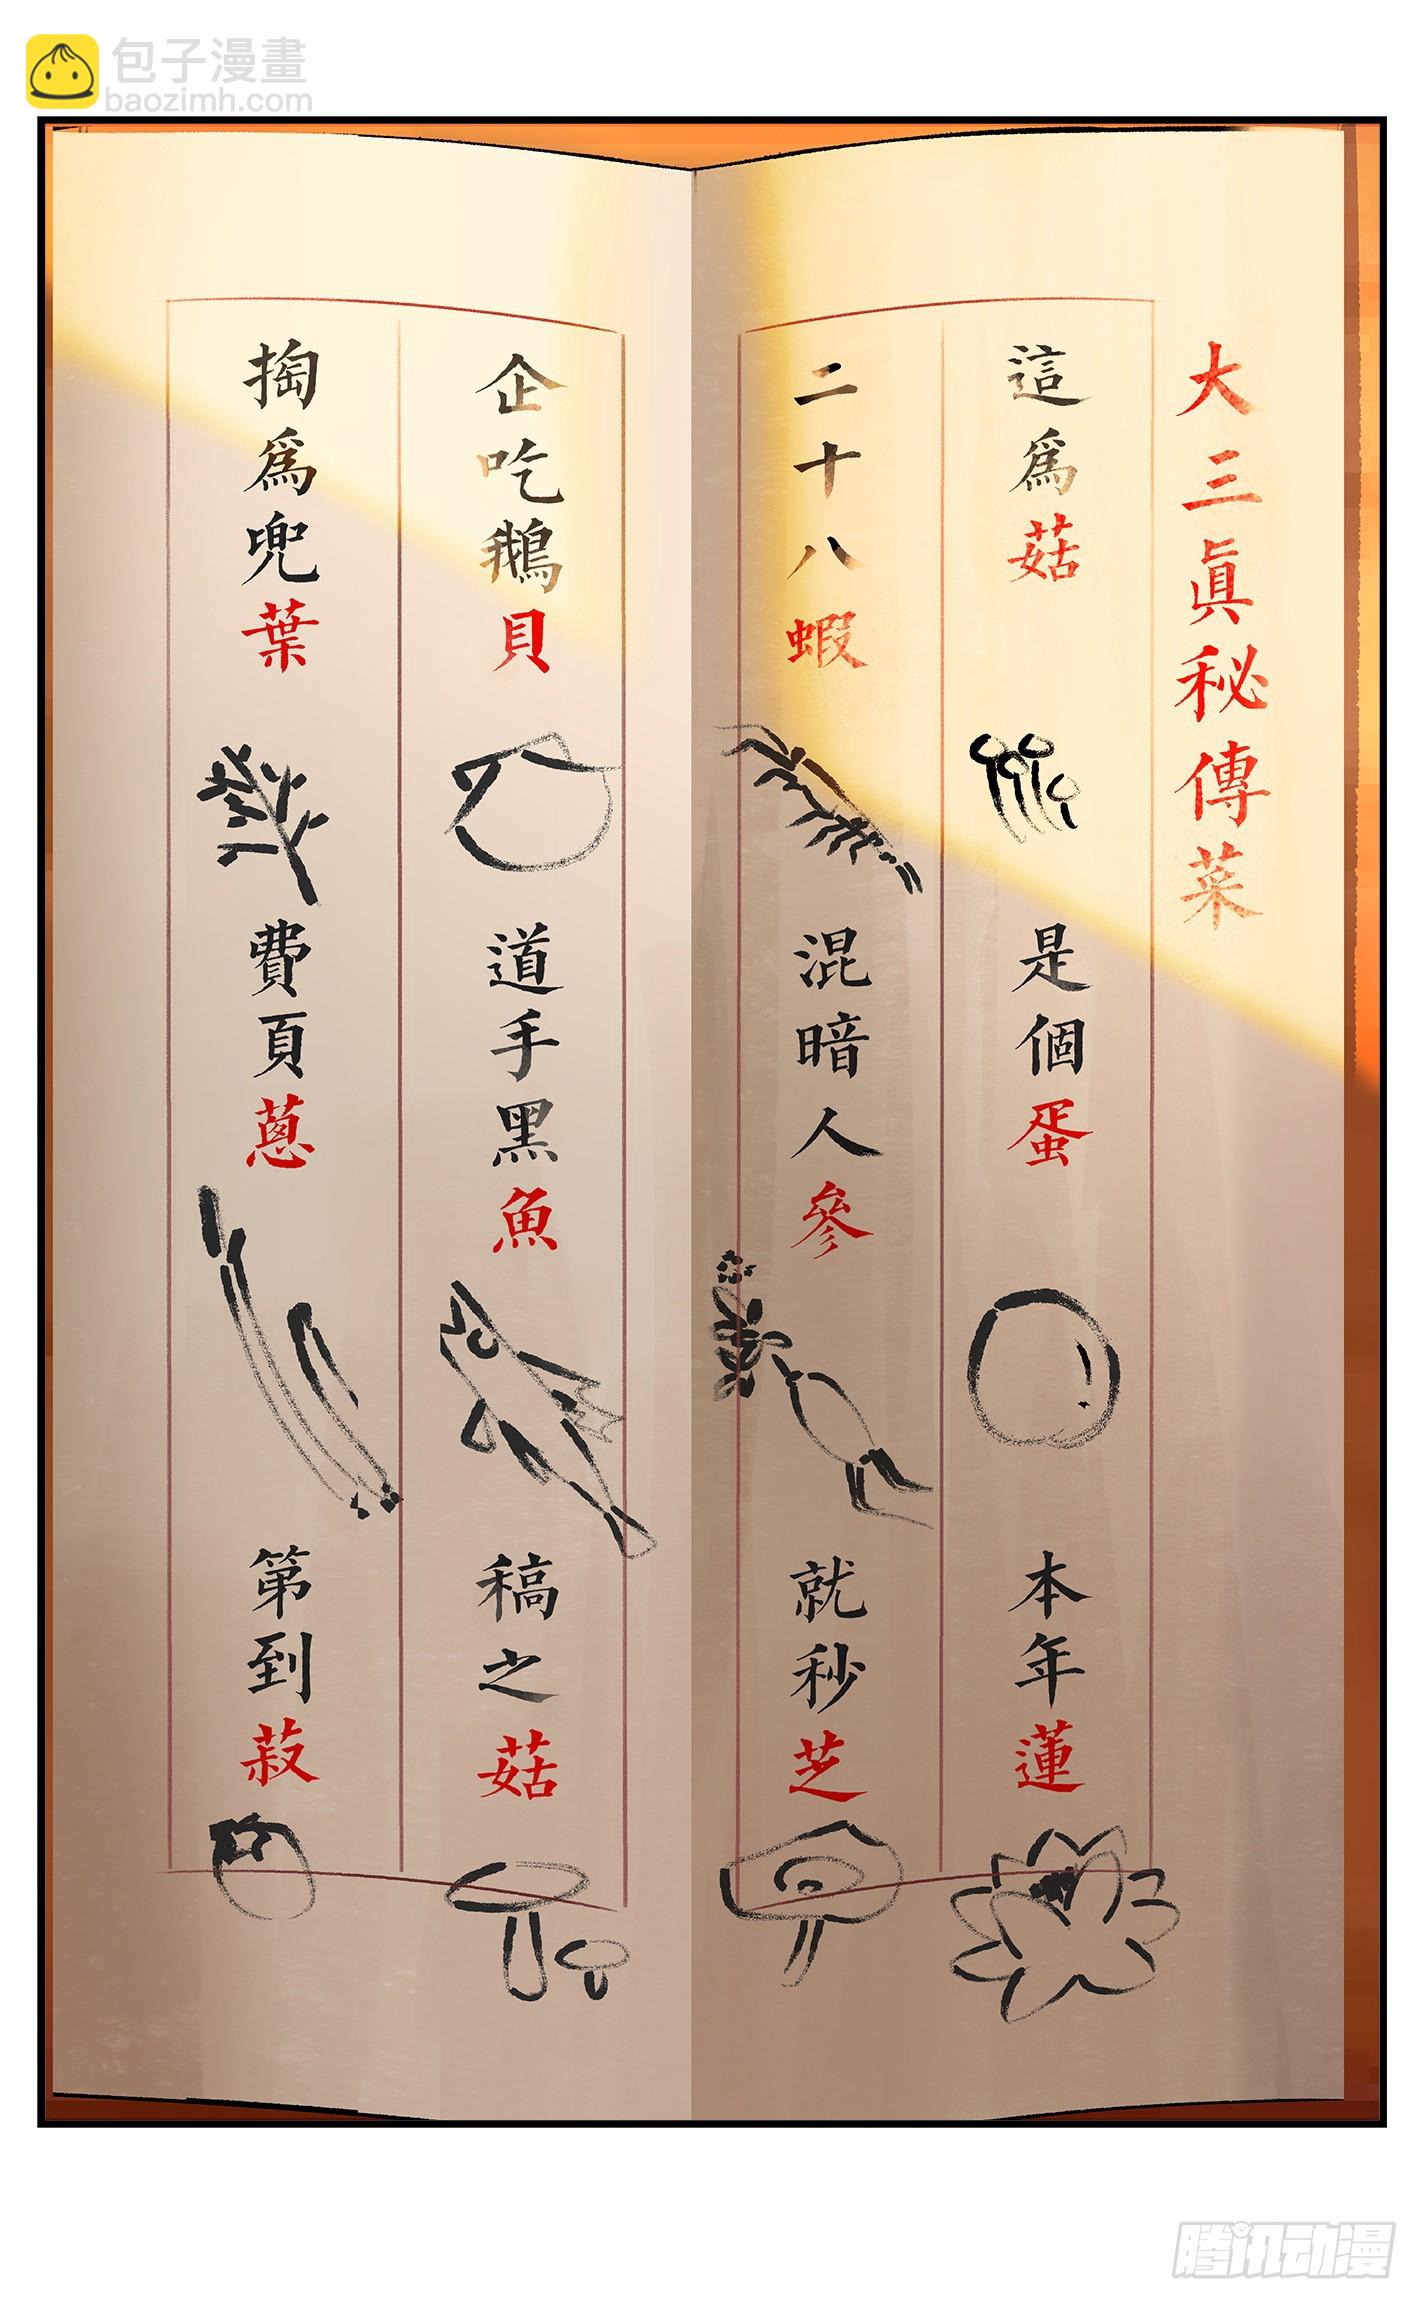 包子漫畫
baozimh.com
大三眞秘傳菜
這爲菇
是個蛋
本年蓮
二十八蝦
混暗人參
就秒芝
企吃鵝貝
道手黑魚
稿之菇
掏爲兜葉
費頁蔥
第到菽
腾讯动漫